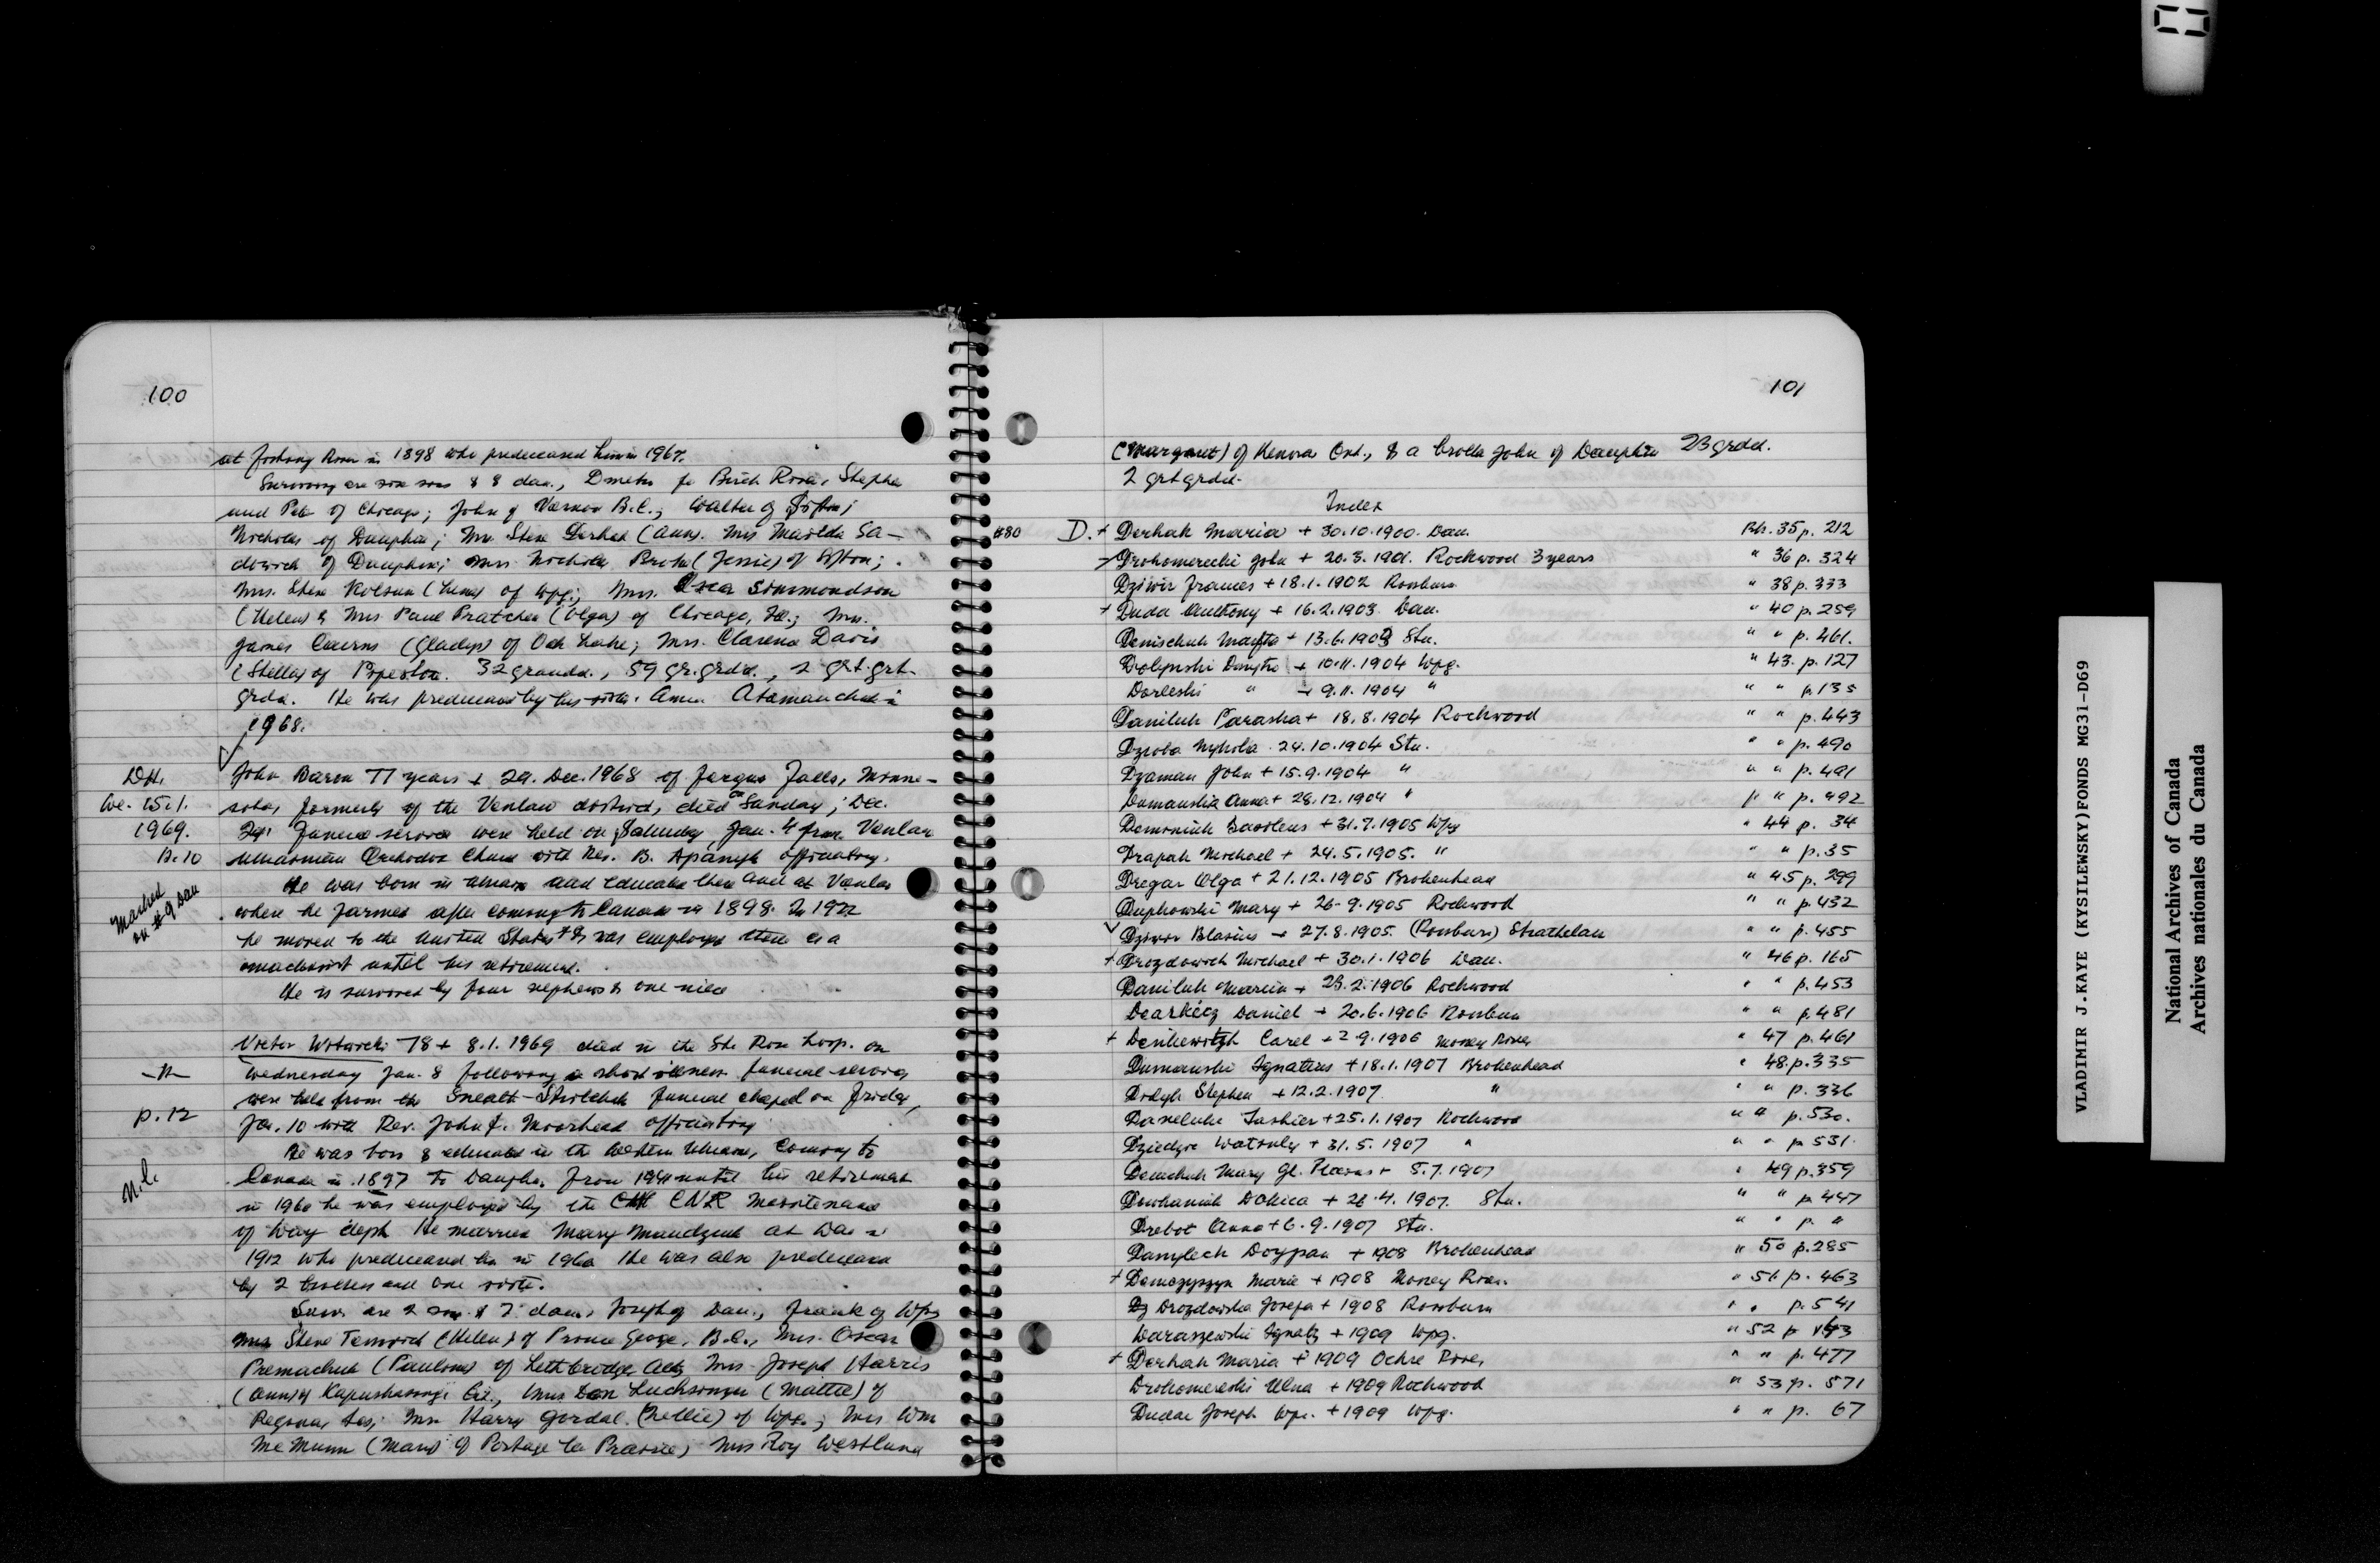 100
at Fishing River in 1898 who predeceased him in 1967.
Surviving are six sons & 8 dau., Dmetro fo Birch River, Stephen
and Peter of Chicago; John of Vernon B.C.; Walter of Sifton;
Nicholas of Dauphin; Mrs. Steve Derhak (Ann). Mrs Matilda Sa-
dowich of Dauphin; Mrs. Nicholas (Jessie) of Sifton;
Mrs. Steve Kolsun (Lena) of Wpg; Mrs. Oscar Simmondson
(Helen) & Mrs Paul Pratcher (Olga) of Chicago, Ill.; Mrs.
James Cairns (Gladys) of Oak Lake; Mrs. Clarence Davis
(Stella) of Pipestone. 32 grandd., 59 gr.grdd., 2 grt.grt
grdd. He was predeceased by his sister Anna Atamanchuk in
1968.
DH.
We. 15.1.
1969.
p. 10
John Baron 77 years + 29. Dec. 1968 of Fergus Falls, Minne-
sota, formerly of the Venlaw district, died on Sunday, Dec.
29. Funeral services were held on Saturday Jan. 4 from Venlaw
Ukrainian Orthodox Church with Rev. B. officiating.
Marked
on # 9 Dau
He was born in Ukraine and educated there and at Venlaw
where he farmed after coming to Canada in 1898. In 1922
he moved to the United States & was employed there as a
machinist until his retirement.
He is survived by four nephews & one niece
Victor Witwicki 78 + 8.1.1969 died in the Ste Rose hosp. on
-"-
Wednesday Jan. 8 following a short illness funeral services
were held from the Sneath-Strilchuk Funeral chapel on Friday,
p. 12
Jan. 10 with Rev. John F. Moorhead officiating
He was born & educated in the Western Ukraine, coming to
N.C.
Canada in 1897 to Dauphin. From 1941 until his retirement
in 1960 he was employed by the CNR Maintenance
of Way dept. He married Mary Mandzuk at Dau in
1912 who predeceased him in 1960 He was also predeceased
by 2 brothers and one sister.
Surv. are 2 sons & 7 daus. Joseph of Dau., Frank of Wpg
Mrs Steve (Helen) of Prince George, B.C., Mrs. Oscar
Premachuk (Pauline) of Lethbridge Alta, Mrs Joseph Harris
(Ann) of Kapuskasing, Mrs Don Luchsinger (Mattie) of
Regina, Sas; Mrs Harry Gordal (Nellie) of Wpg.; Mrs Wm
McMunn (Mary) of Portage la Prairie; Mrs Roy Westlund
101
(Margaret) of Kenora Ont., & a brother John of Dauphin 23 grdd.
2 grtgrdd.
Index
#80 D. + Derhak Maria + 30.10.1900. Dau. Bk. 35 p. 212
Drohomerecki John + 20.3.1901. Rockwood 3 years " 36 p. 324
Dziwir Frances + 18.1.1902 Rossburn " 38 p. 333
+ Duda Anthony + 16.2.1903 Dau. " 40 p. 259
Denischuk Marfta + 13.6.1903 Stu. " " p. 461.
Dolynski Dmytro + 10.11.1904 Wpg. " 43. p. 127
Dorleski " + 9.11.1904 " " " p. 135
Daniluk Paraska + 18.8.1904 Rockwood " " p. 443
Dzioba Mykola 24.10.1904 Stu. " " p. 490
Dzaman John + 15.9.1904 " " " p. 491
Dumanska Anna + 28.12.1904 " " " p. 492
Dominiuk Wasileus + 31.7.1905 Wpg " 44 p. 34
Drapak Michael + 24.5.1905. " " " p. 35
Dregar Olga + 21.12.1905 Brokenhead " 45 p. 299
Dupkowski Mary + 26.9.1905 Rockwood " " p. 432
Dziwir Blasius + 27.8.1905. (Rossburn) Strathclair " " p. 455
+ Drozdowich Michael + 30.1.1906 Dau. " 46 p. 165
Daniluk Maria + 23.2.1906 Rockwood " " p. 453
Dearkicz Daniel + 20.6.1906 Rossburn " " p. 481
+ Denikewitzh Carel + 2.9.1906 Mossey River " 47 p. 461
Dumanski Ignatius + 18.1.1907 Brokenhead " 48. p. 335
Didyk Stephen + 12.2.1907 " " " p. 336
Daneluk + 25.1.1907 Rockwood " " p. 530.
Dziedzic Watsuly + 31.5.1907 " " " p. 531.
Demchuk Mary Gl. Plains + 5.7.1907 " 49 p. 359
Dowhaniuk Dokica + 26.4.1907. Stu. " " p. 447
Drebot Anna + 6.9.1907 Stu. " " p. "
Danylech + 1908 Brokenhead " 50 p. 285
+ Domczyszyn Marie + 1908 Mossey River. " 51 p. 463
Drozdowska Josefa + 1908 Rossburn " " p. 541
Daraszewski Ignatz + 1909 Wpg. " 52 p 143
+ Derhak Maria + 1909 Ochre River " " p. 477
Drohomereski Ulna + 1909 Rockwood " 53 p. 571
Dudar Joseph Wpg. + 1909 Wpg. " " p. 67
VLADIMIR J.KAYE (KYSILEWSKY)FONDS MG31-D69
National Archives of Canada
Archives nationales du Canada